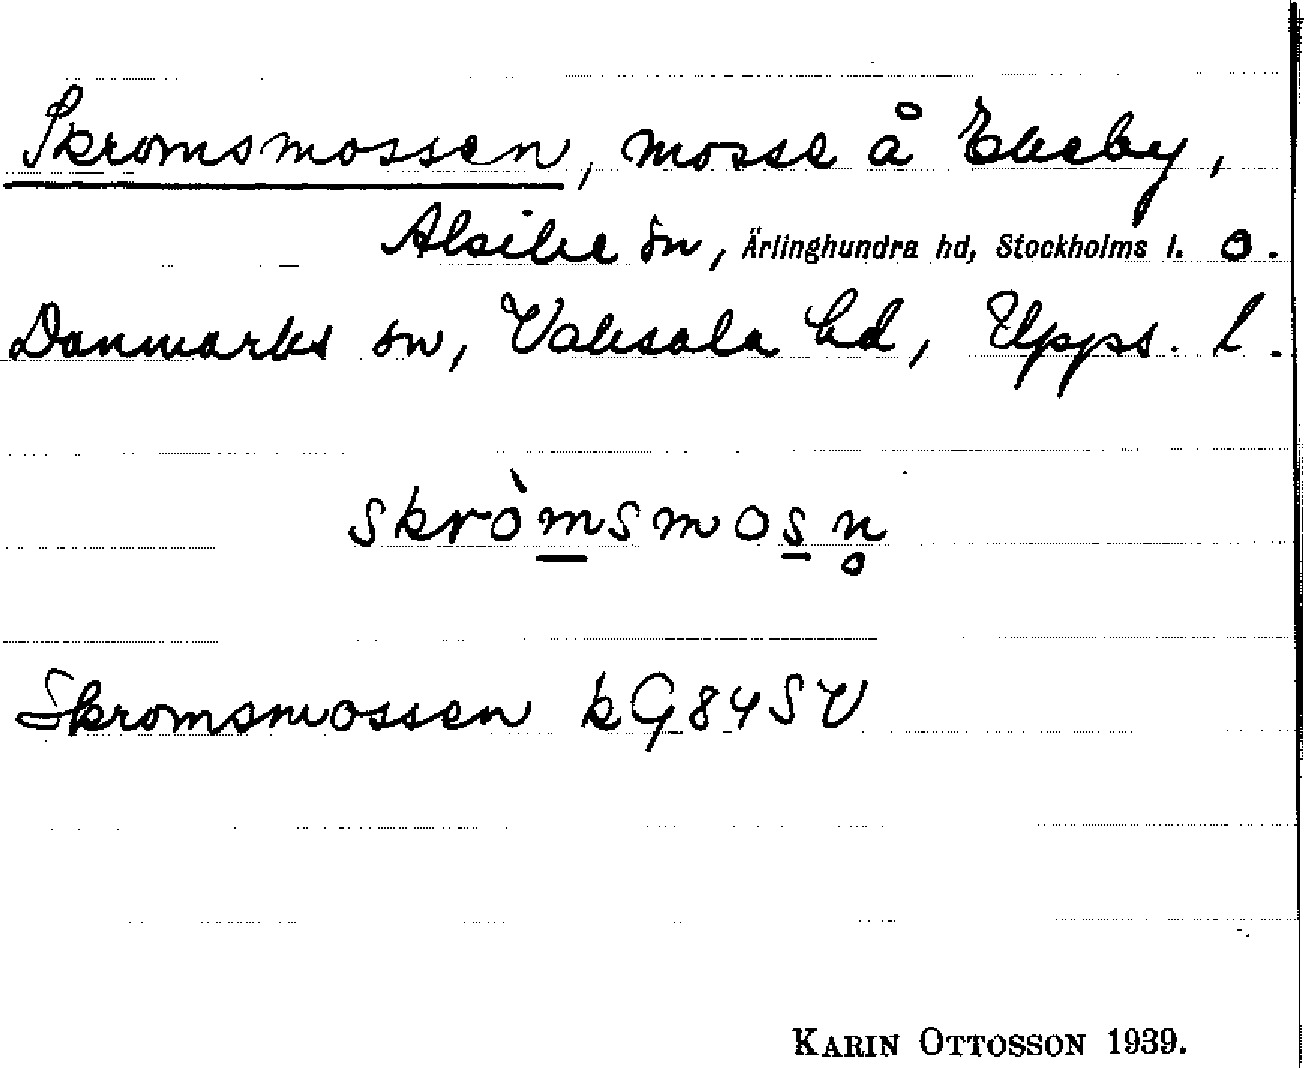 Skromsmossen, mosse å Ekeby,
Alsike sn, Ärlinghundra hd, Stockholms l. o.
Danmarks sn, Vaksala hd, Upps. l.
skròm̲smos̲n̥
Skromsmossen kG84SV
KARIN OTTOSSON 1939.